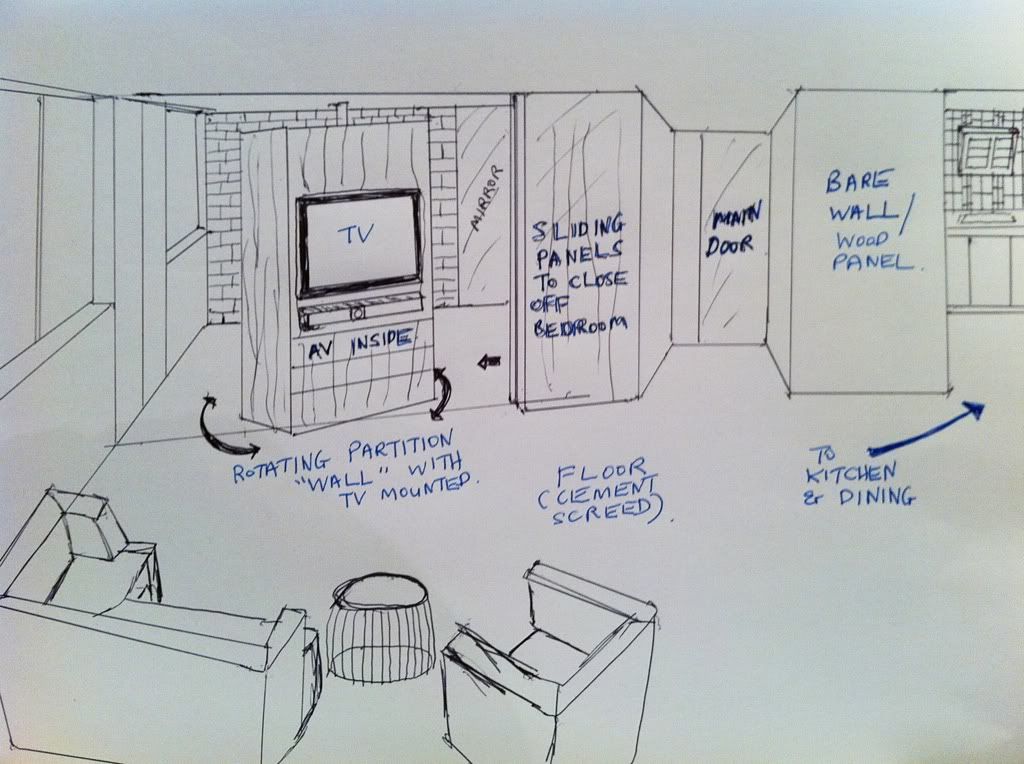 TV
AV INSIDE
MIRROR
SLIDING
PANELS
TO CLOSE
OFF
BEDROOM
MAIN
DOOR
BARE
WALL/
WOOD
PANEL.
ROTATING PARTITION
"WALL" WITH
TV MOUNTED.
FLOOR
(CLEMENT
SCREED).
TO
KITCHEN
& DINING